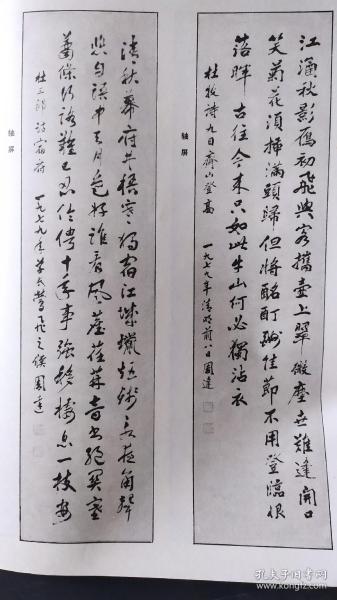 江涵秋影雁初飛與客攜壺上翠微塵世難逢開口
笑菊花須插滿頭歸但將酩酊酬佳節不用登臨恨
落暉古往今來只如此牛山何必獨沾衣
杜牧詩九日齊山登高 一九七九年清明前八日
轴屏
清秋幕府井梧寒獨宿江城蠟炬殘永夜角聲
悲自語中天月色好誰看風塵荏苒音書絕關塞
蕭條行路難已忍伶俜十年事強移棲息一枝安
杜工部詩宿府 一九七九年草長鶯飛之候
轴屏
孔夫子旧书网